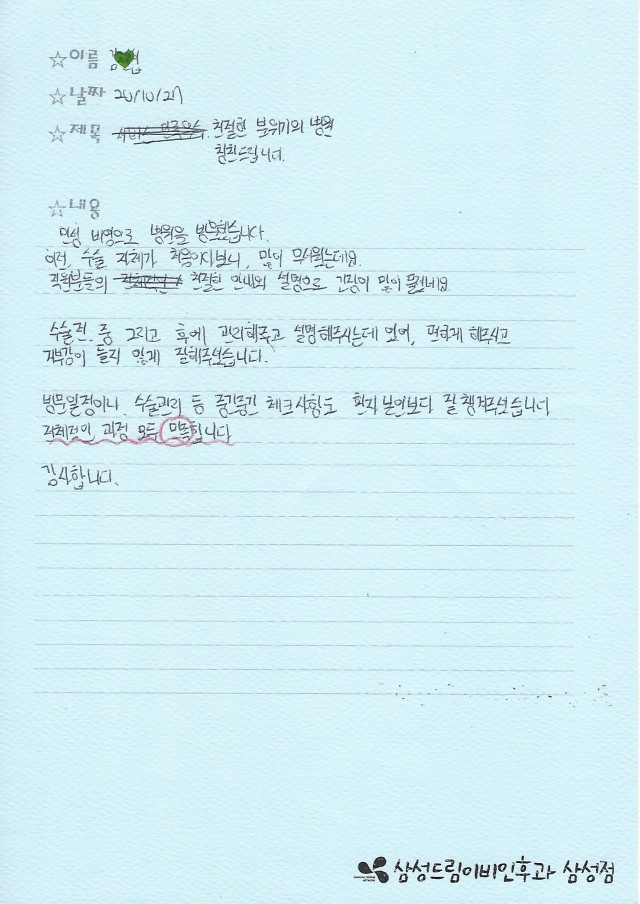 ☆이름 김
☆날짜 20/10/27
☆제목 친절한 분위기의 병원
칭찬드립니다.
☆내용
만성 비염으로 병원을 방문했습니다.
이런 수술 자체가 처음이다보니, 많이 무서웠는데요.
직원분들의 친절한 안내와 설명으로 긴장이 많이 풀렸네요.
수술전. 중 그리고 후에 관리해주고 설명해주시는데 있어, 편하게 해주시고
거부감이 들지 않게 잘해주셨습니다.
방문일정이나 수술관리 등 중간중간 체크사항도 환자 본인보다 잘 챙겨주셨습니다
전체적인 과정 모두 만족합니다
감사합니다.
삼성드림이비인후과 삼성점